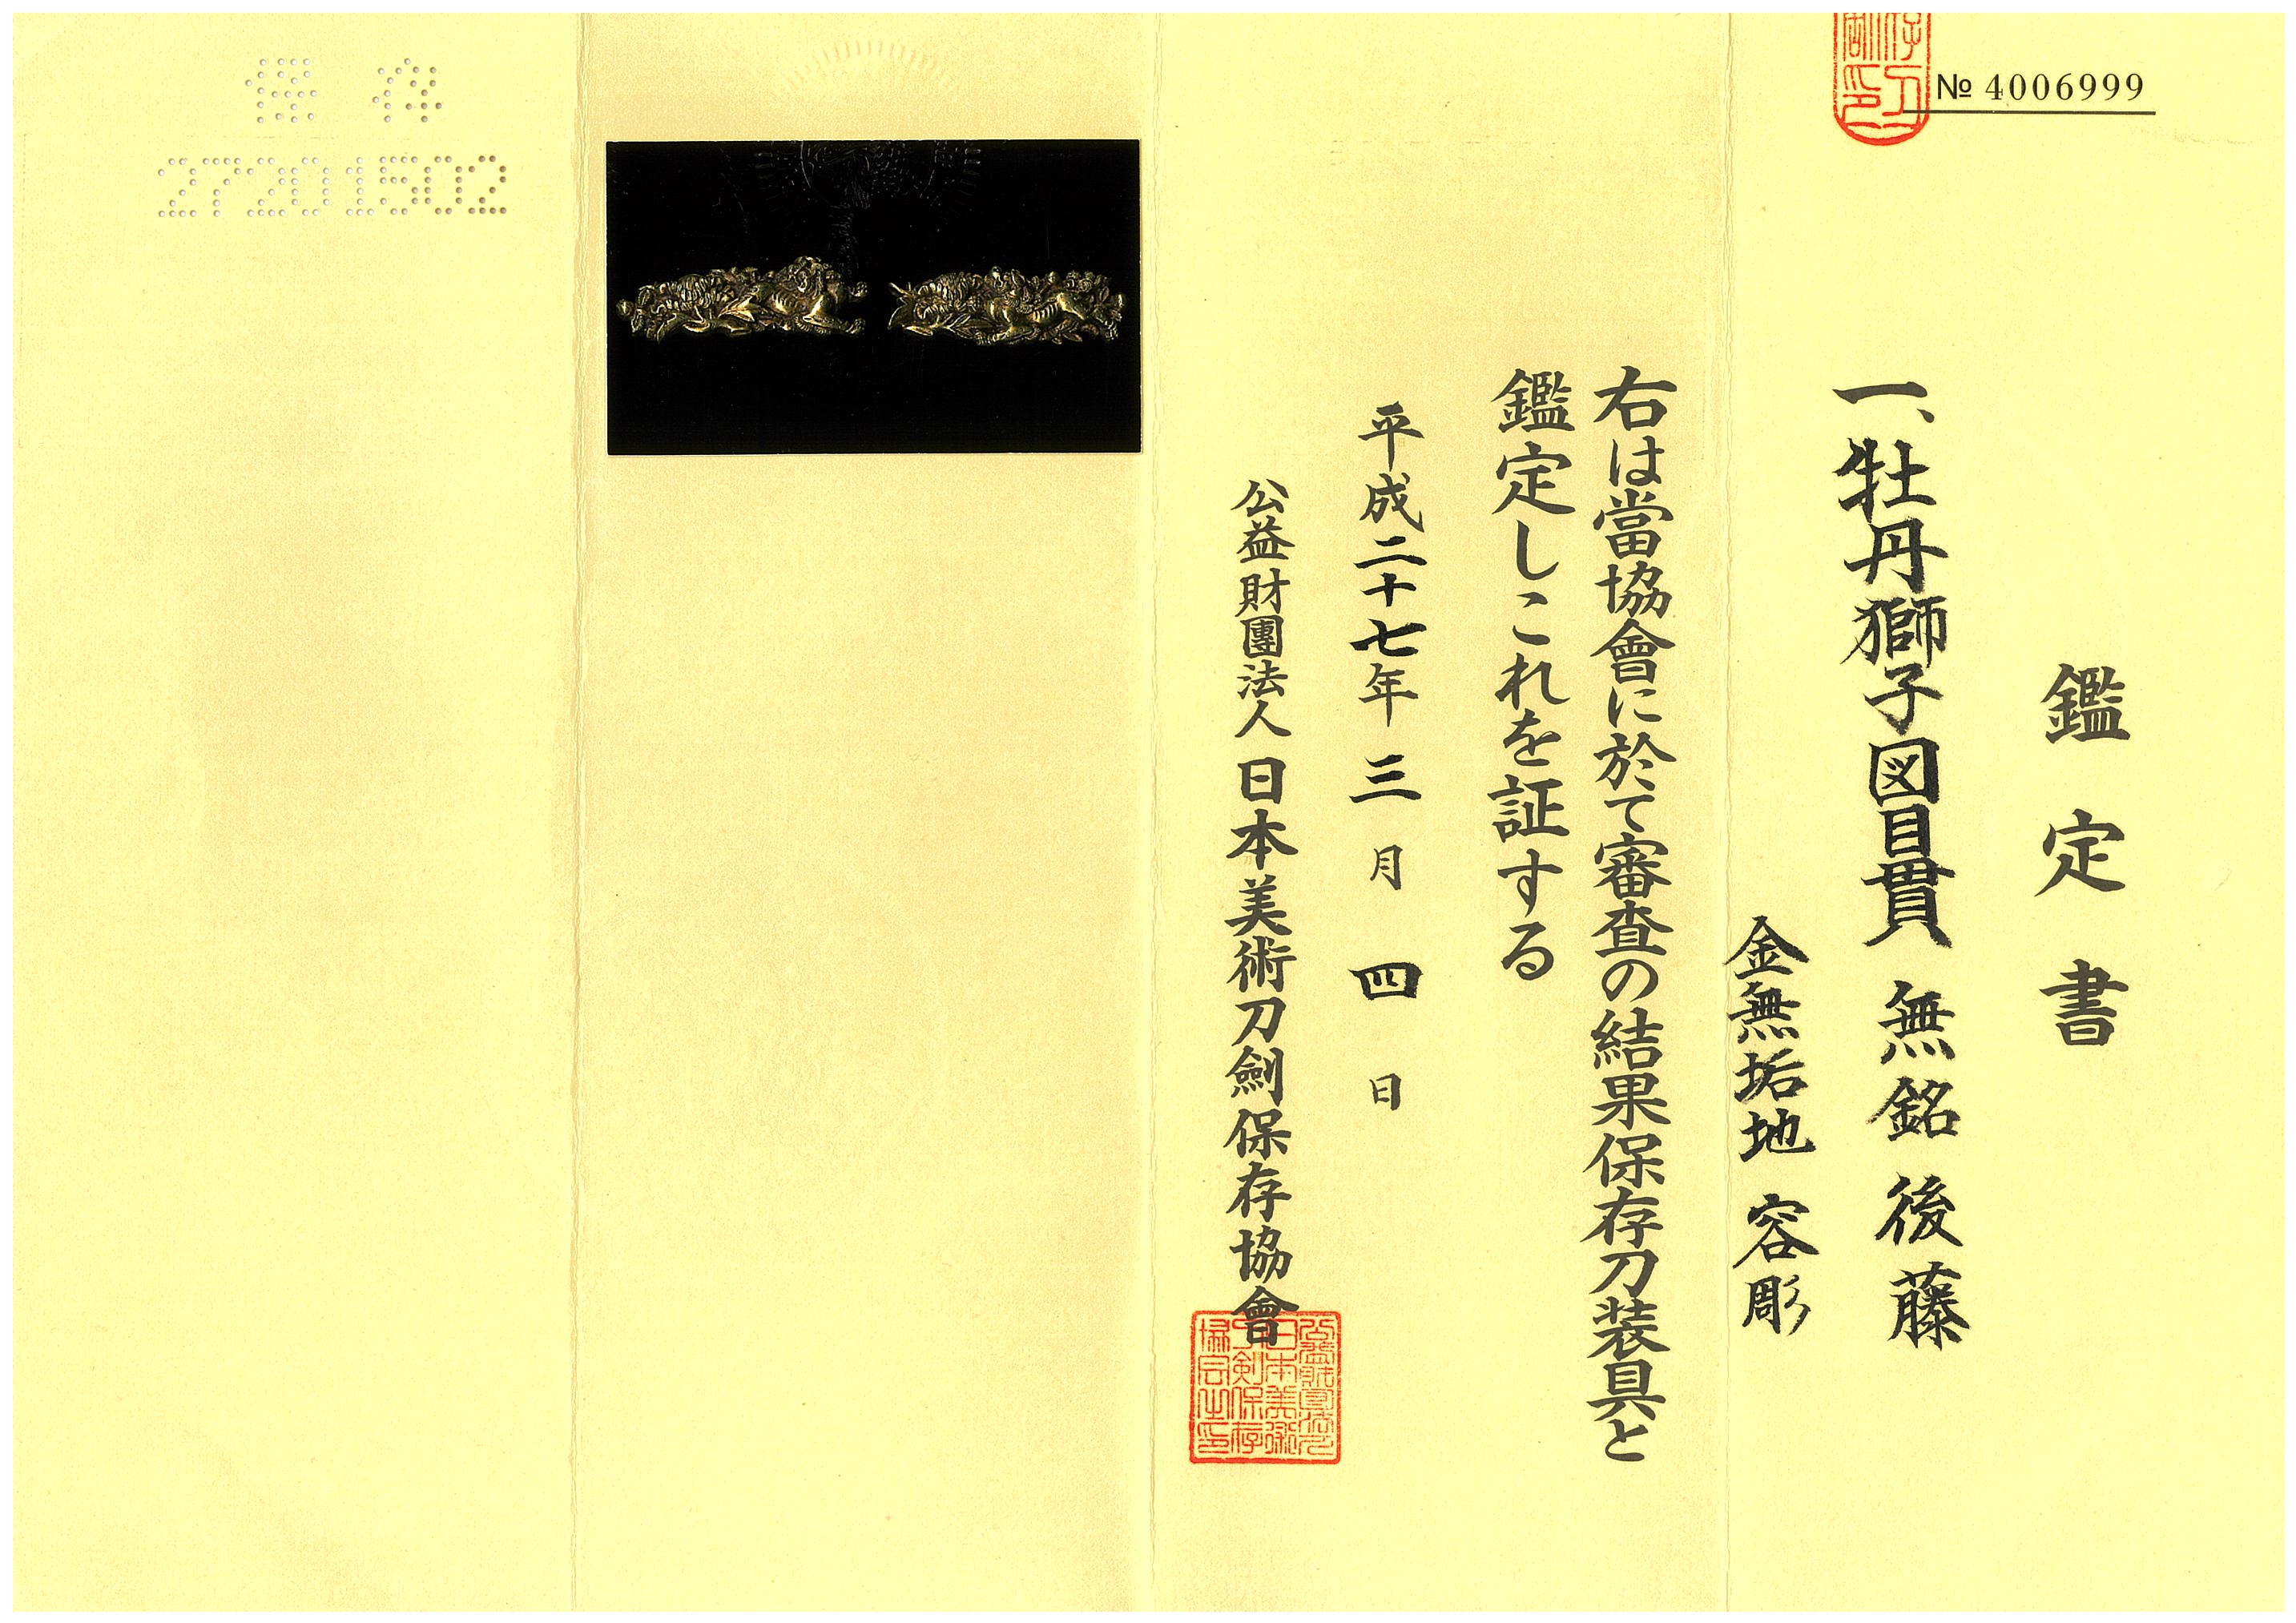 № 4006999
鑑定書
一、牡丹獅子図目貫 無銘 後藤
金無垢地 容彫
右は當協會に於て審査の結果保存刀装具と
鑑定しこれを証する
平成二十七年三月四日
公益財團法人 日本美術刀劍保存協會
保存
27201502